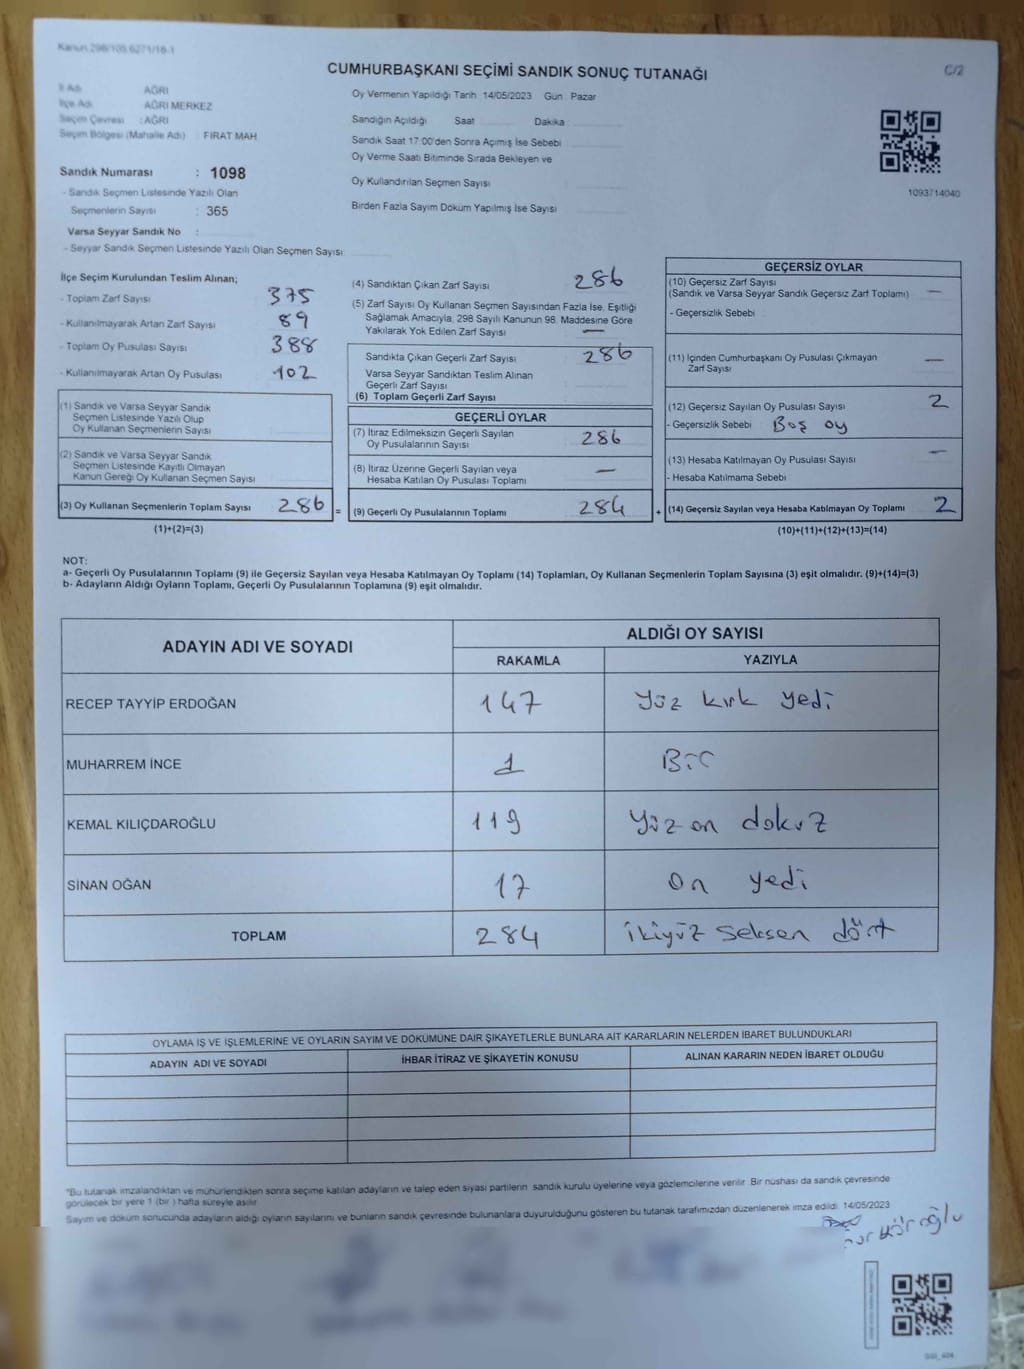 Kanun 298/105,6271/18-1
CUMHURBAŞKANI SEÇİMİ SANDIK SONUÇ TUTANAĞI
C/2
İl Adı AĞRI
İlçe Adı AĞRI MERKEZ
Seçim Çevresi : AĞRI
Seçim Bölgesi (Mahalle Adı) : FIRAT MAH
Sandık Numarası : 1098
- Sandık Seçmen Listesinde Yazılı Olan
Seçmenlerin Sayısı : 365
Varsa Seyyar Sandık No :
- Seyyar Sandık Seçmen Listesinde Yazılı Olan Seçmen Sayısı:
Oy Vermenin Yapıldığı Tarih 14/05/2023 Gün : Pazar
Sandığın Açıldığı Saat Dakika
Sandık Saat 17:00'den Sonra Açımış İse Sebebi
Oy Verme Saati Bitiminde Sırada Bekleyen ve
Oy Kullandırılan Seçmen Sayısı
Birden Fazla Sayım Döküm Yapılmış İse Sayısı
1093714040
İlçe Seçim Kurulundan Teslim Alınan;
- Toplam Zarf Sayısı 375
- Kullanılmayarak Artan Zarf Sayısı 89
- Toplam Oy Pusulası Sayısı 388
- Kullanılmayarak Artan Oy Pusulası 102
(1) Sandık ve Varsa Seyyar Sandık
Seçmen Listesinde Yazılı Olup
Oy Kullanan Seçmenlerin Sayısı
(2) Sandık ve Varsa Seyyar Sandık
Seçmen Listesinde Kayıtlı Olmayan
Kanun Gereği Oy Kullanan Seçmen Sayısı
(3) Oy Kullanan Seçmenlerin Toplam Sayısı 286 =
(1)+(2)=(3)
(4) Sandıktan Çıkan Zarf Sayısı 286
(5) Zarf Sayısı Oy Kullanan Seçmen Sayısından Fazla İse, Eşitliği
Sağlamak Amacıyla, 298 Sayılı Kanunun 98. Maddesine Göre
Yakılarak Yok Edilen Zarf Sayısı —
Sandıkta Çıkan Geçerli Zarf Sayısı 286
Varsa Seyyar Sandıktan Teslim Alınan
Geçerli Zarf Sayısı
(6) Toplam Geçerli Zarf Sayısı
GEÇERLİ OYLAR
(7) İtiraz Edilmeksizin Geçerli Sayılan
Oy Pusulalarının Sayısı 286
(8) İtiraz Üzerine Geçerli Sayılan veya
Hesaba Katılan Oy Pusulası Toplamı —
(9) Geçerli Oy Pusulalarının Toplamı 284 +
GEÇERSİZ OYLAR
(10) Geçersiz Zarf Sayısı
(Sandık ve Varsa Seyyar Sandık Geçersiz Zarf Toplamı) —
- Geçersizlik Sebebi
(11) İçinden Cumhurbaşkanı Oy Pusulası Çıkmayan
Zarf Sayısı —
(12) Geçersiz Sayılan Oy Pusulası Sayısı 2
- Geçersizlik Sebebi Boş oy
(13) Hesaba Katılmayan Oy Pusulası Sayısı —
- Hesaba Katılmama Sebebi
(14) Geçersiz Sayılan veya Hesaba Katılmayan Oy Toplamı 2
(10)+(11)+(12)+(13)=(14)
NOT:
a- Geçerli Oy Pusulalarının Toplamı (9) ile Geçersiz Sayılan veya Hesaba Katılmayan Oy Toplamı (14) Toplamları, Oy Kullanan Seçmenlerin Toplam Sayısına (3) eşit olmalıdır. (9)+(14)=(3)
b- Adayların Aldığı Oyların Toplamı, Geçerli Oy Pusulalarının Toplamına (9) eşit olmalıdır.
ADAYIN ADI VE SOYADI ALDIĞI OY SAYISI
RAKAMLA YAZIYLA
RECEP TAYYİP ERDOĞAN 147 Yüz kırk yedi
MUHARREM İNCE 1 Bir
KEMAL KILIÇDAROĞLU 119 Yüz on dokuz
SİNAN OĞAN 17 On yedi
TOPLAM 284 ikiyüz seksen dört
OYLAMA İŞ VE İŞLEMLERİNE VE OYLARIN SAYIM VE DÖKÜMÜNE DAİR ŞİKAYETLERLE BUNLARA AİT KARARLARIN NELERDEN İBARET BULUNDUKLARI
ADAYIN ADI VE SOYADI İHBAR İTİRAZ VE ŞİKAYETİN KONUSU ALINAN KARARIN NEDEN İBARET OLDUĞU
"Bu tutanak imzalandıktan ve mühürlendikten sonra seçime katılan adayların ve talep eden siyasi partilerin sandık kurulu üyelerine veya gözlemcilerine verilir. Bir nüshası da sandık çevresinde
görülecek bir yere 1 (bir ) hafta süreyle asılır
Sayım ve döküm sonucunda adayların aldığı oyların sayılarını ve bunların sandık çevresinde bulunanlara duyurulduğunu gösteren bu tutanak tarafımızdan düzenlenerek imza edildi. 14/05/2023